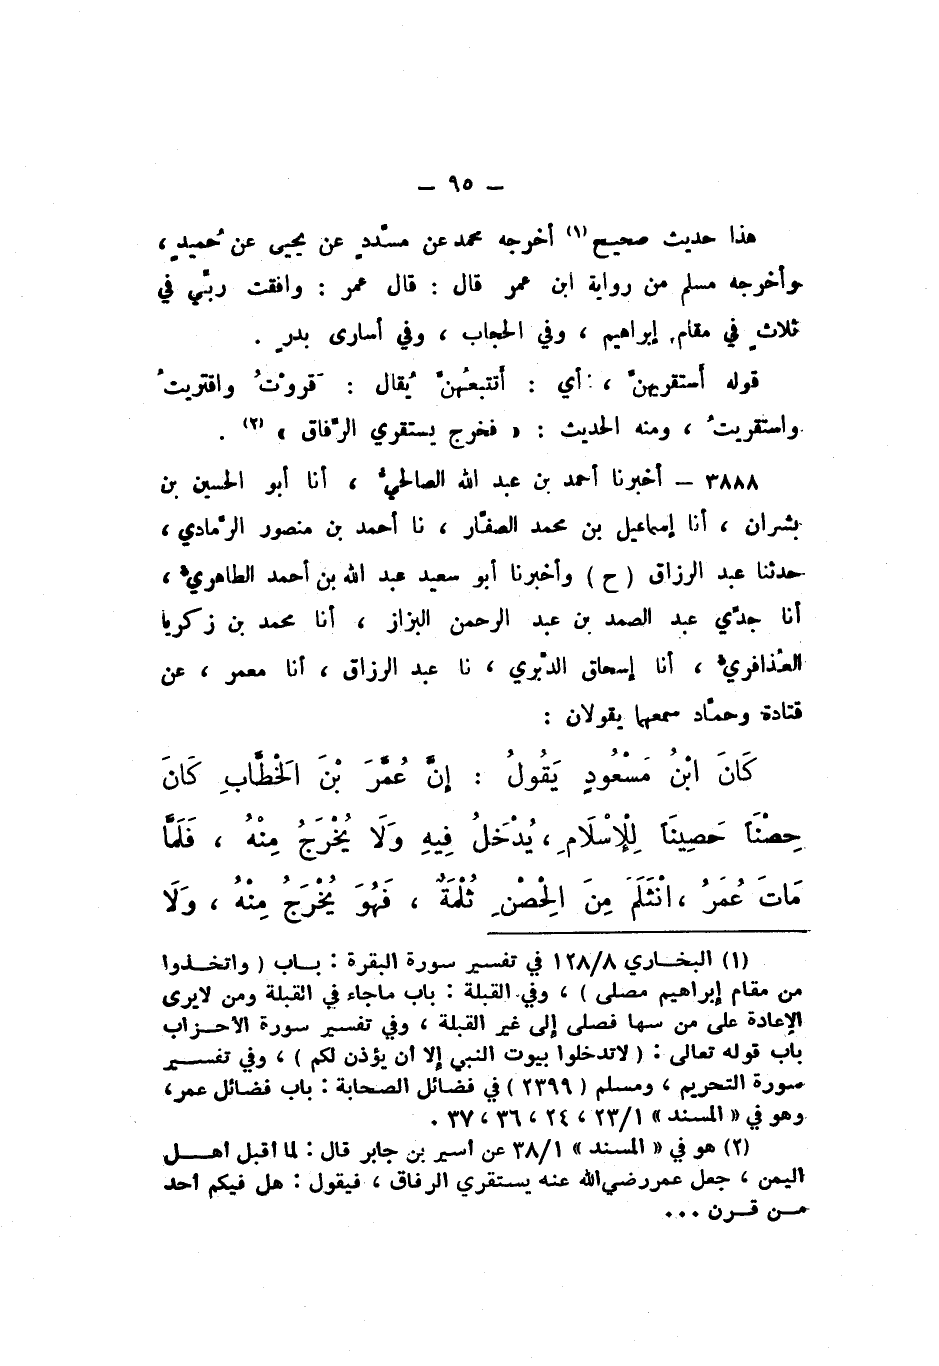 – ٩٥ –
هذا حديث صحيح (١) أخرجه محمد عن مسدّدٍ عن يحيى عن حُميدٍ ،
وأخرجه مسلم من رواية ابن عمر قال : قال عمر : وافقت ربّي في
ثلاثٍ في مقام إبراهيم ، وفي الحجاب ، وفي أسارى بدرٍ .
قوله أَستقريهنّ ، أي : أَتتبعُهنّ يُقال : قَروْتُ واقتريتُ
واستقريتُ ، ومنه الحديث : « فخرج يستقري الرّفاق » (٢) .
٣٨٨٨ – أخبرنا أحمد بن عبد الله الصالحيُّ ، أنا أبو الحسين بن
بشران ، أنا إسماعيل بن محمد الصفّار ، نا أحمد بن منصور الرّمادي ،
حدثنا عبد الرزاق ( ح ) وأخبرنا أبو سعيد عبد الله بن أحمد الطاهريُّ ،
أنا جدّي عبد الصمد بن عبد الرحمن البزاز ، أنا محمد بن زكريا
العُذافريُّ ، أنا إسحاق الدّبري ، نا عبد الرزاق ، أنا معمر ، عن
قتادة وحمّاد سمعها يقولان :
كَانَ ابْنُ مَسْعُودٍ يَقُولُ : إِنَّ عُمَرَ بْنَ الْخَطَّابِ كَانَ
حِصْنَاً حَصِينَاً لِلْإِسْلَامِ ، يُدْخَلُ فِيهِ وَلَا يُخْرَجُ مِنْهُ ، فَلَمَّا
مَاتَ عُمَرُ ، انْثَلَمَ مِنَ الْحِصْنِ ثُلْمَةٌ ، فَهُوَ يُخْرَجُ مِنْهُ ، وَلَا
(١) البخاري ١٢٨/٨ في تفسير سورة البقرة : باب ( واتخذوا
من مقام إبراهيم مصلى ) ، وفي القبلة : باب ماجاء في القبلة ومن لايرى
الإعادة على من سها فصلى إلى غير القبلة ، وفي تفسير سورة الأحزاب
باب قوله تعالى : ( لاتدخلوا بيوت النبي إلا أن يؤذن لكم ) ، وفي تفسير
سورة التحريم ، ومسلم ( ٢٣٩٩ ) في فضائل الصحابة : باب فضائل عمر،
وهو في « المسند » ٢٣/١ ، ٢٤ ، ٣٦ ، ٣٧ .
(٢) هو في « المسند » ٣٨/١ عن أسير بن جابر قال : لما أقبل أهل
اليمن ، جعل عمر رضي الله عنه يستقري الرفاق ، فيقول : هل فيكم أحد
من قرن ...